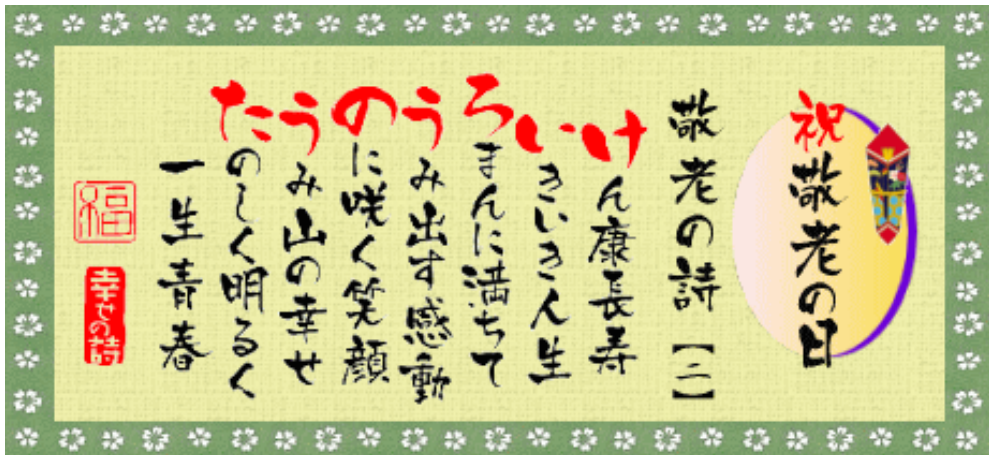 祝敬老の日
敬老の詩【二】
けん康長寿
いきいき人生
ろまんに満ちて
うみ出す感動
のに咲く笑顔
うみ山の幸せ
たのしく明るく
一生青春
福
幸せの詩